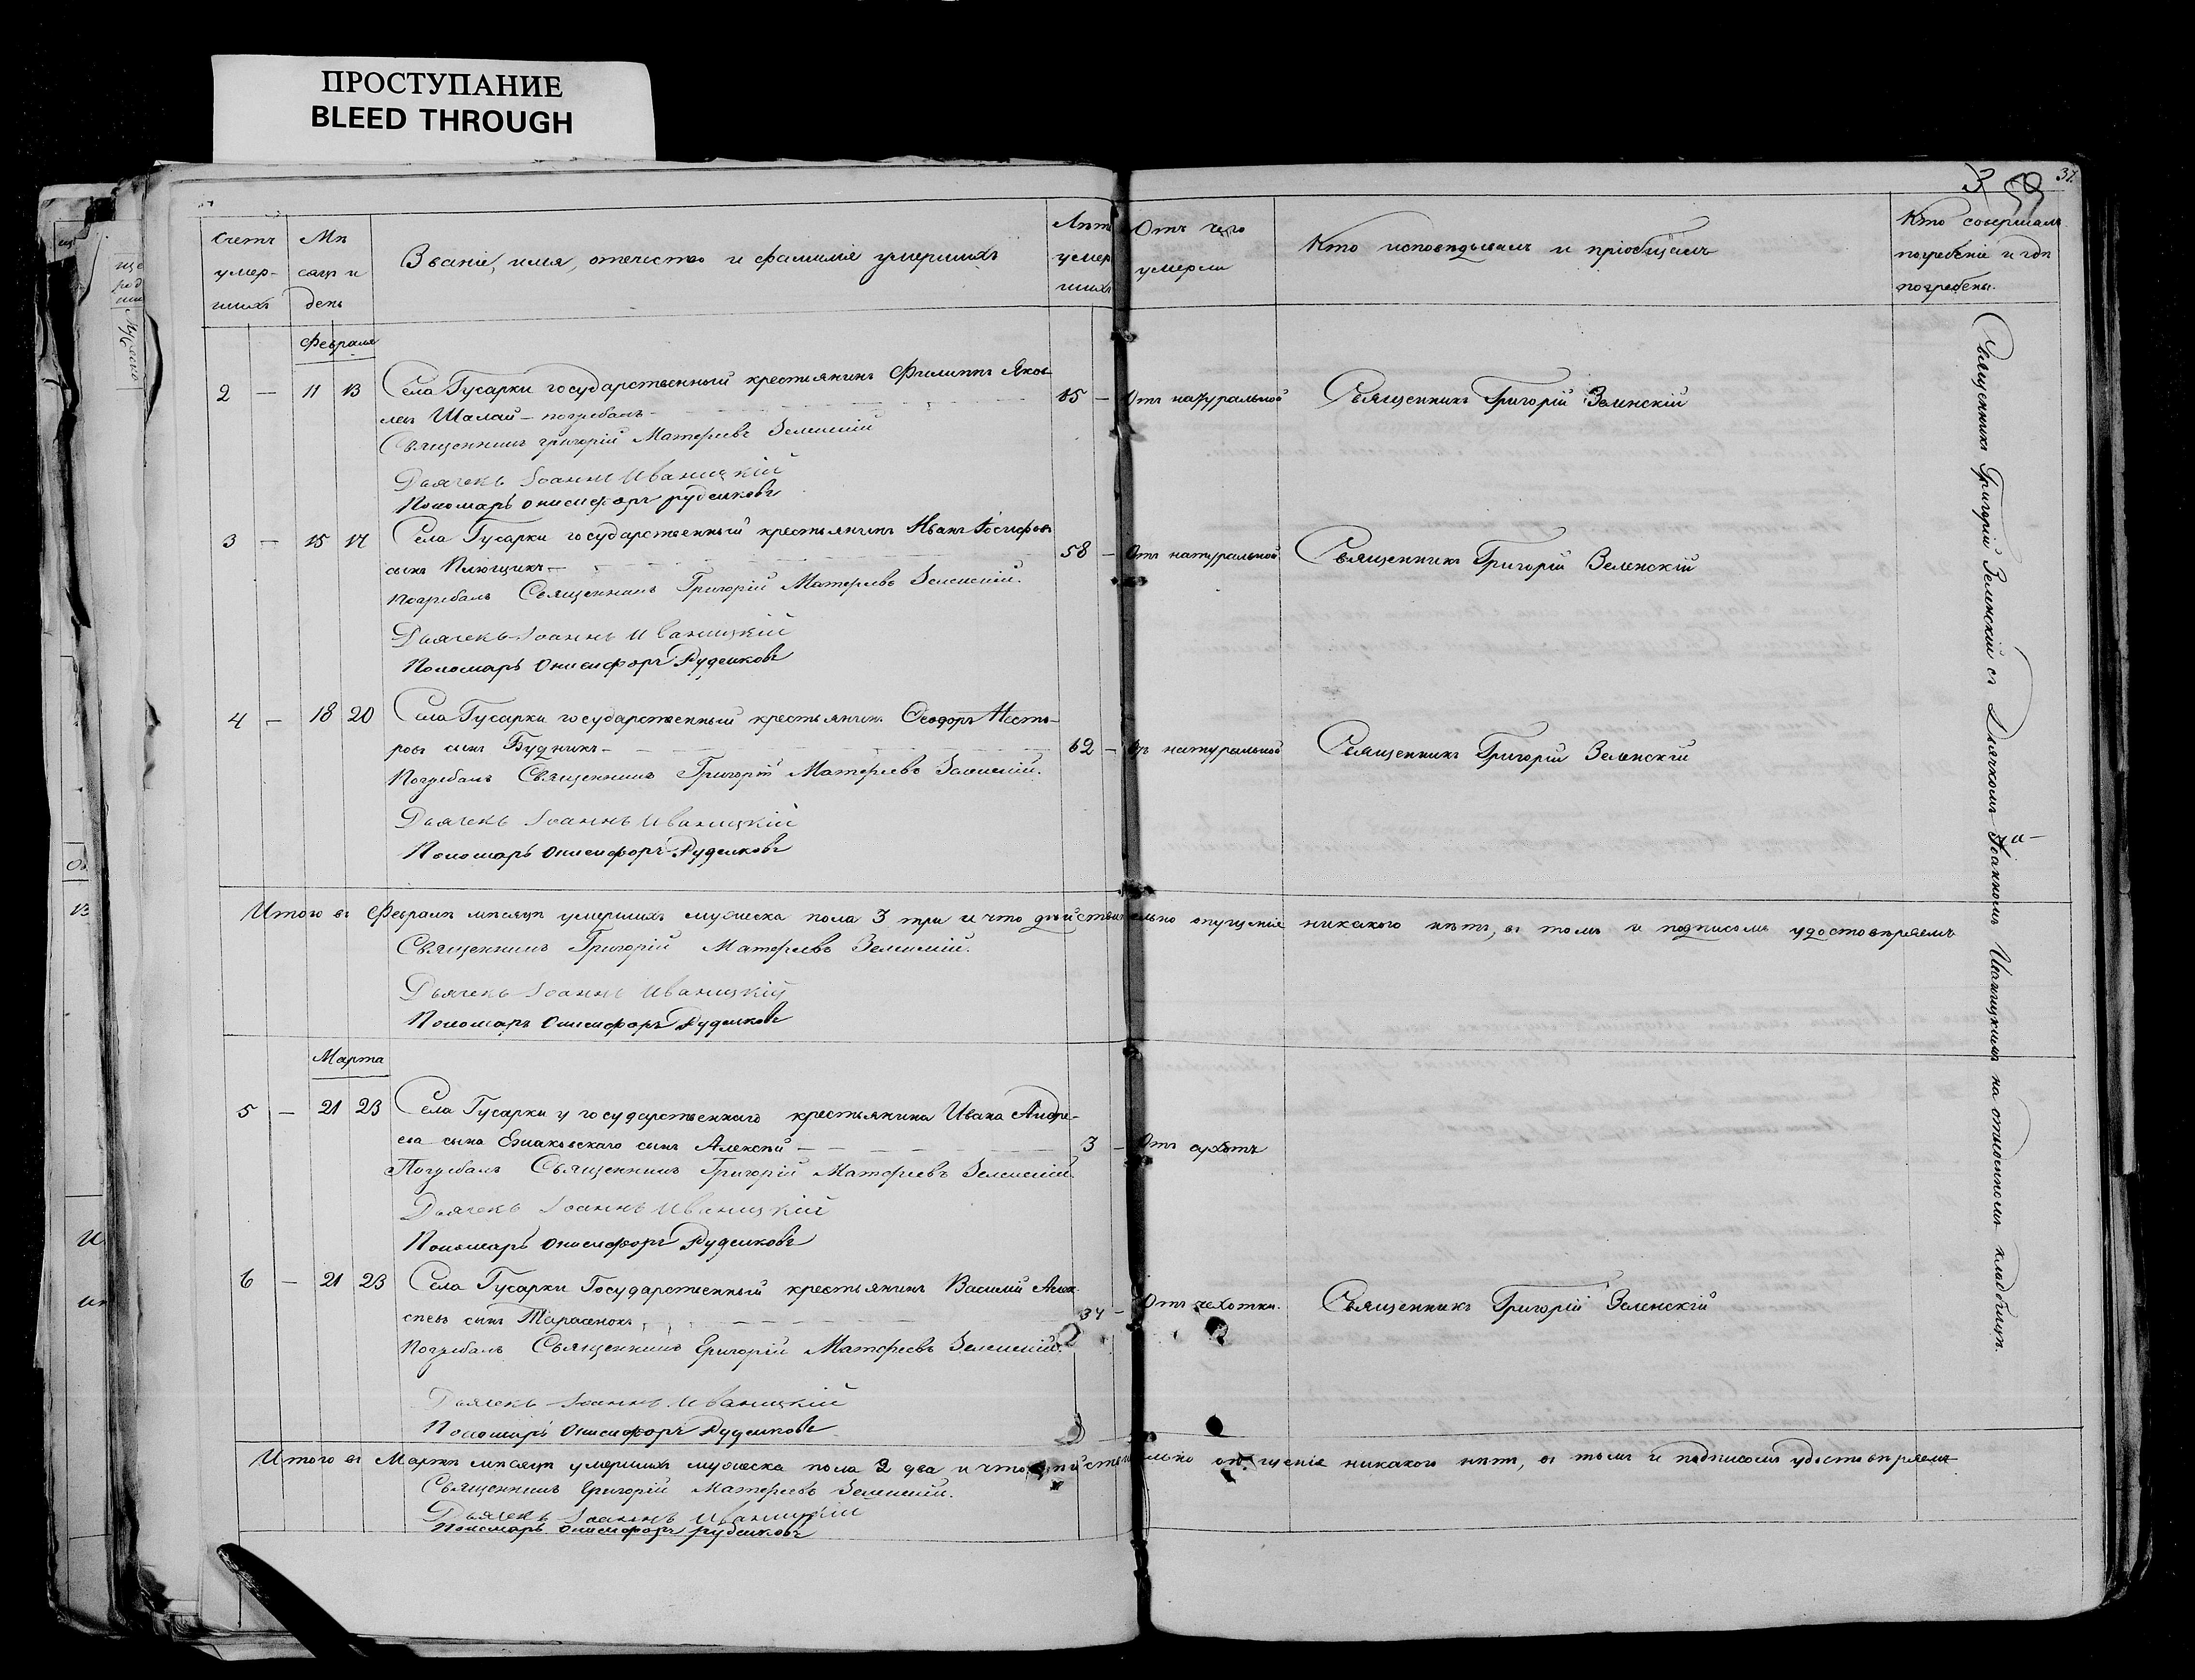 ПРОСТУПАНИЕ
BLEED THROUGH
37.
Счетъ умер-шихъ
Мѣсяцъ и день
Званіе, имя, отчество и фамилія умершихъ
Лѣта умершихъ
Отъ чего умерли
Кто исповѣдывалъ и пріобщалъ
Кто совершалъ погребеніе и гдѣ погребены.
Февраля
2 — 11 13 Села Гусарки государственный крестьянинъ Филиппъ Яков-
левъ Шалай — погребалъ — 85 — Отъ натуральной Священникъ Григорій Зеленскій
Священникъ Григорій Матфеевъ Зеленскій
Дьячекъ Іоаннъ Иваницкій
Пономарь Онисифоръ Руденковъ
3 — 15 17 Села Гусарки государственный крестьянинъ Иванъ Іосифовъ
сынъ — 58 — Отъ натуральной Священникъ Григорій Зеленскій
Погребалъ Священникъ Григорій Матфеевъ Зеленскій.
Дьячекъ Іоаннъ Иваницкій
Пономарь Онисифоръ Руденковъ
4 — 18 20 Села Гусарки государственный крестьянин. Феодоръ Несте-
ровъ сынъ Будникъ — 62 — Отъ натуральной Священникъ Григорій Зеленскій
Погребалъ Священникъ Григорій Матфеевъ Зеленскій.
Дьячекъ Іоаннъ Иваницкій
Пономарь Онисифоръ Руденковъ
Итого въ Февралѣ мѣсяцѣ умершихъ мужеска пола 3 три и что дѣйствительно опущенія никакого нѣтъ, въ томъ и подписомъ удостовѣряемъ
Священникъ Григорій Матфеевъ Зеленскій.
Дьячекъ Іоаннъ Иваницкій
Пономарь Онисифоръ Руденковъ
Марта
5 — 21 23 Села Гусарки у государственнаго крестьянина Ивана Андре-
ева сына сынъ Алексѣй — 3 — Отъ сухотъ
Погребалъ Священникъ Григорій Матфеевъ Зеленскій.
Дьячекъ Іоаннъ Иваницкій
Пономарь Онисифоръ Руденковъ
6 — 21 23 Села Гусарки Государственный крестьянинъ Василій Алек-
сѣевъ сынъ Тарасенокъ 34 — Отъ чехотки. Священникъ Григорій Зеленскій
Погребалъ Священникъ Григорій Матфеевъ Зеленскій.
Дьячекъ Іоаннъ Иваницкій
Пономарь Онисифоръ Руденковъ
Итого въ Мартѣ мѣсяцѣ умершихъ мужеска пола 2 два и что дѣйствительно опущенія никакого нѣтъ, въ томъ и подписомъ удостовѣряемъ
Священникъ Григорій Матфеевъ Зеленскій.
Дьячекъ Іоаннъ Иваницкій
Пономарь Онисифоръ Руденковъ
Священникъ Григорій Зеленскій съ Дьячкомъ Іоанномъ Иваницкимъ на кладбищѣ.